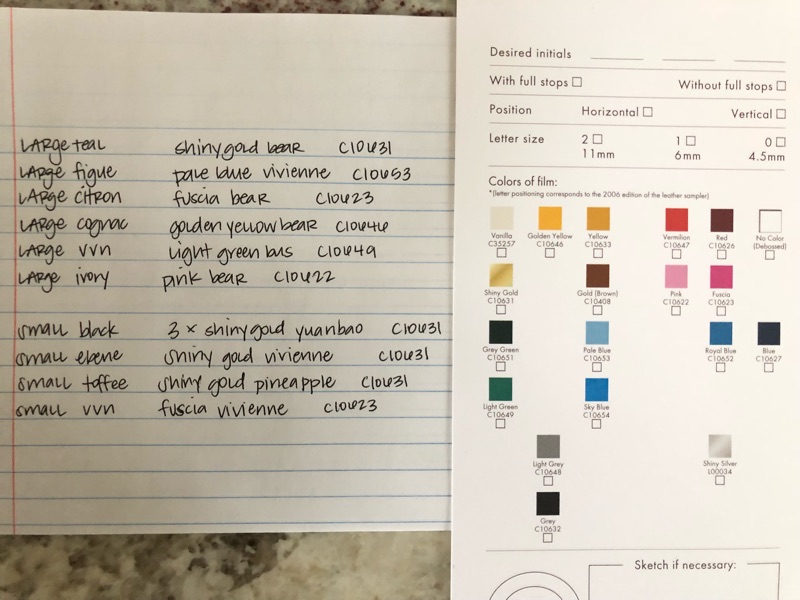 LARGE teal shiny gold bear C10631
LARGE figue pale blue vivienne C10653
LARGE citron fuscia bear C10623
LARGE cognac golden yellow bear C10646
LARGE vvn light green bus C10649
LARGE ivory pink bear C10622
small black 3 x shiny gold yuanbao C10631
small ebene shiny gold vivienne C10631
small toffee shiny gold pineapple C10631
small vvn fuscia vivienne C10623
Desired initials
With full stops Without full stops
Position Horizontal Vertical
Letter size 2 1 0
11mm 6mm 4.5mm
Colors of film:
*(letter positioning corresponds to the 2006 edition of the leather sampler)
Vanilla Golden Yellow Yellow Vermilion Red No Color
C35257 C10646 C10633 C10647 C10626 (Debossed)
Shiny Gold Gold (Brown) Pink Fuscia
C10631 C10408 C10622 C10623
Grey Green Pale Blue Royal Blue Blue
C10651 C10653 C10652 C10627
Light Green Sky Blue
C10649 C10654
Light Grey Shiny Silver
C10648 L00034
Grey
C10632
Sketch if necessary: